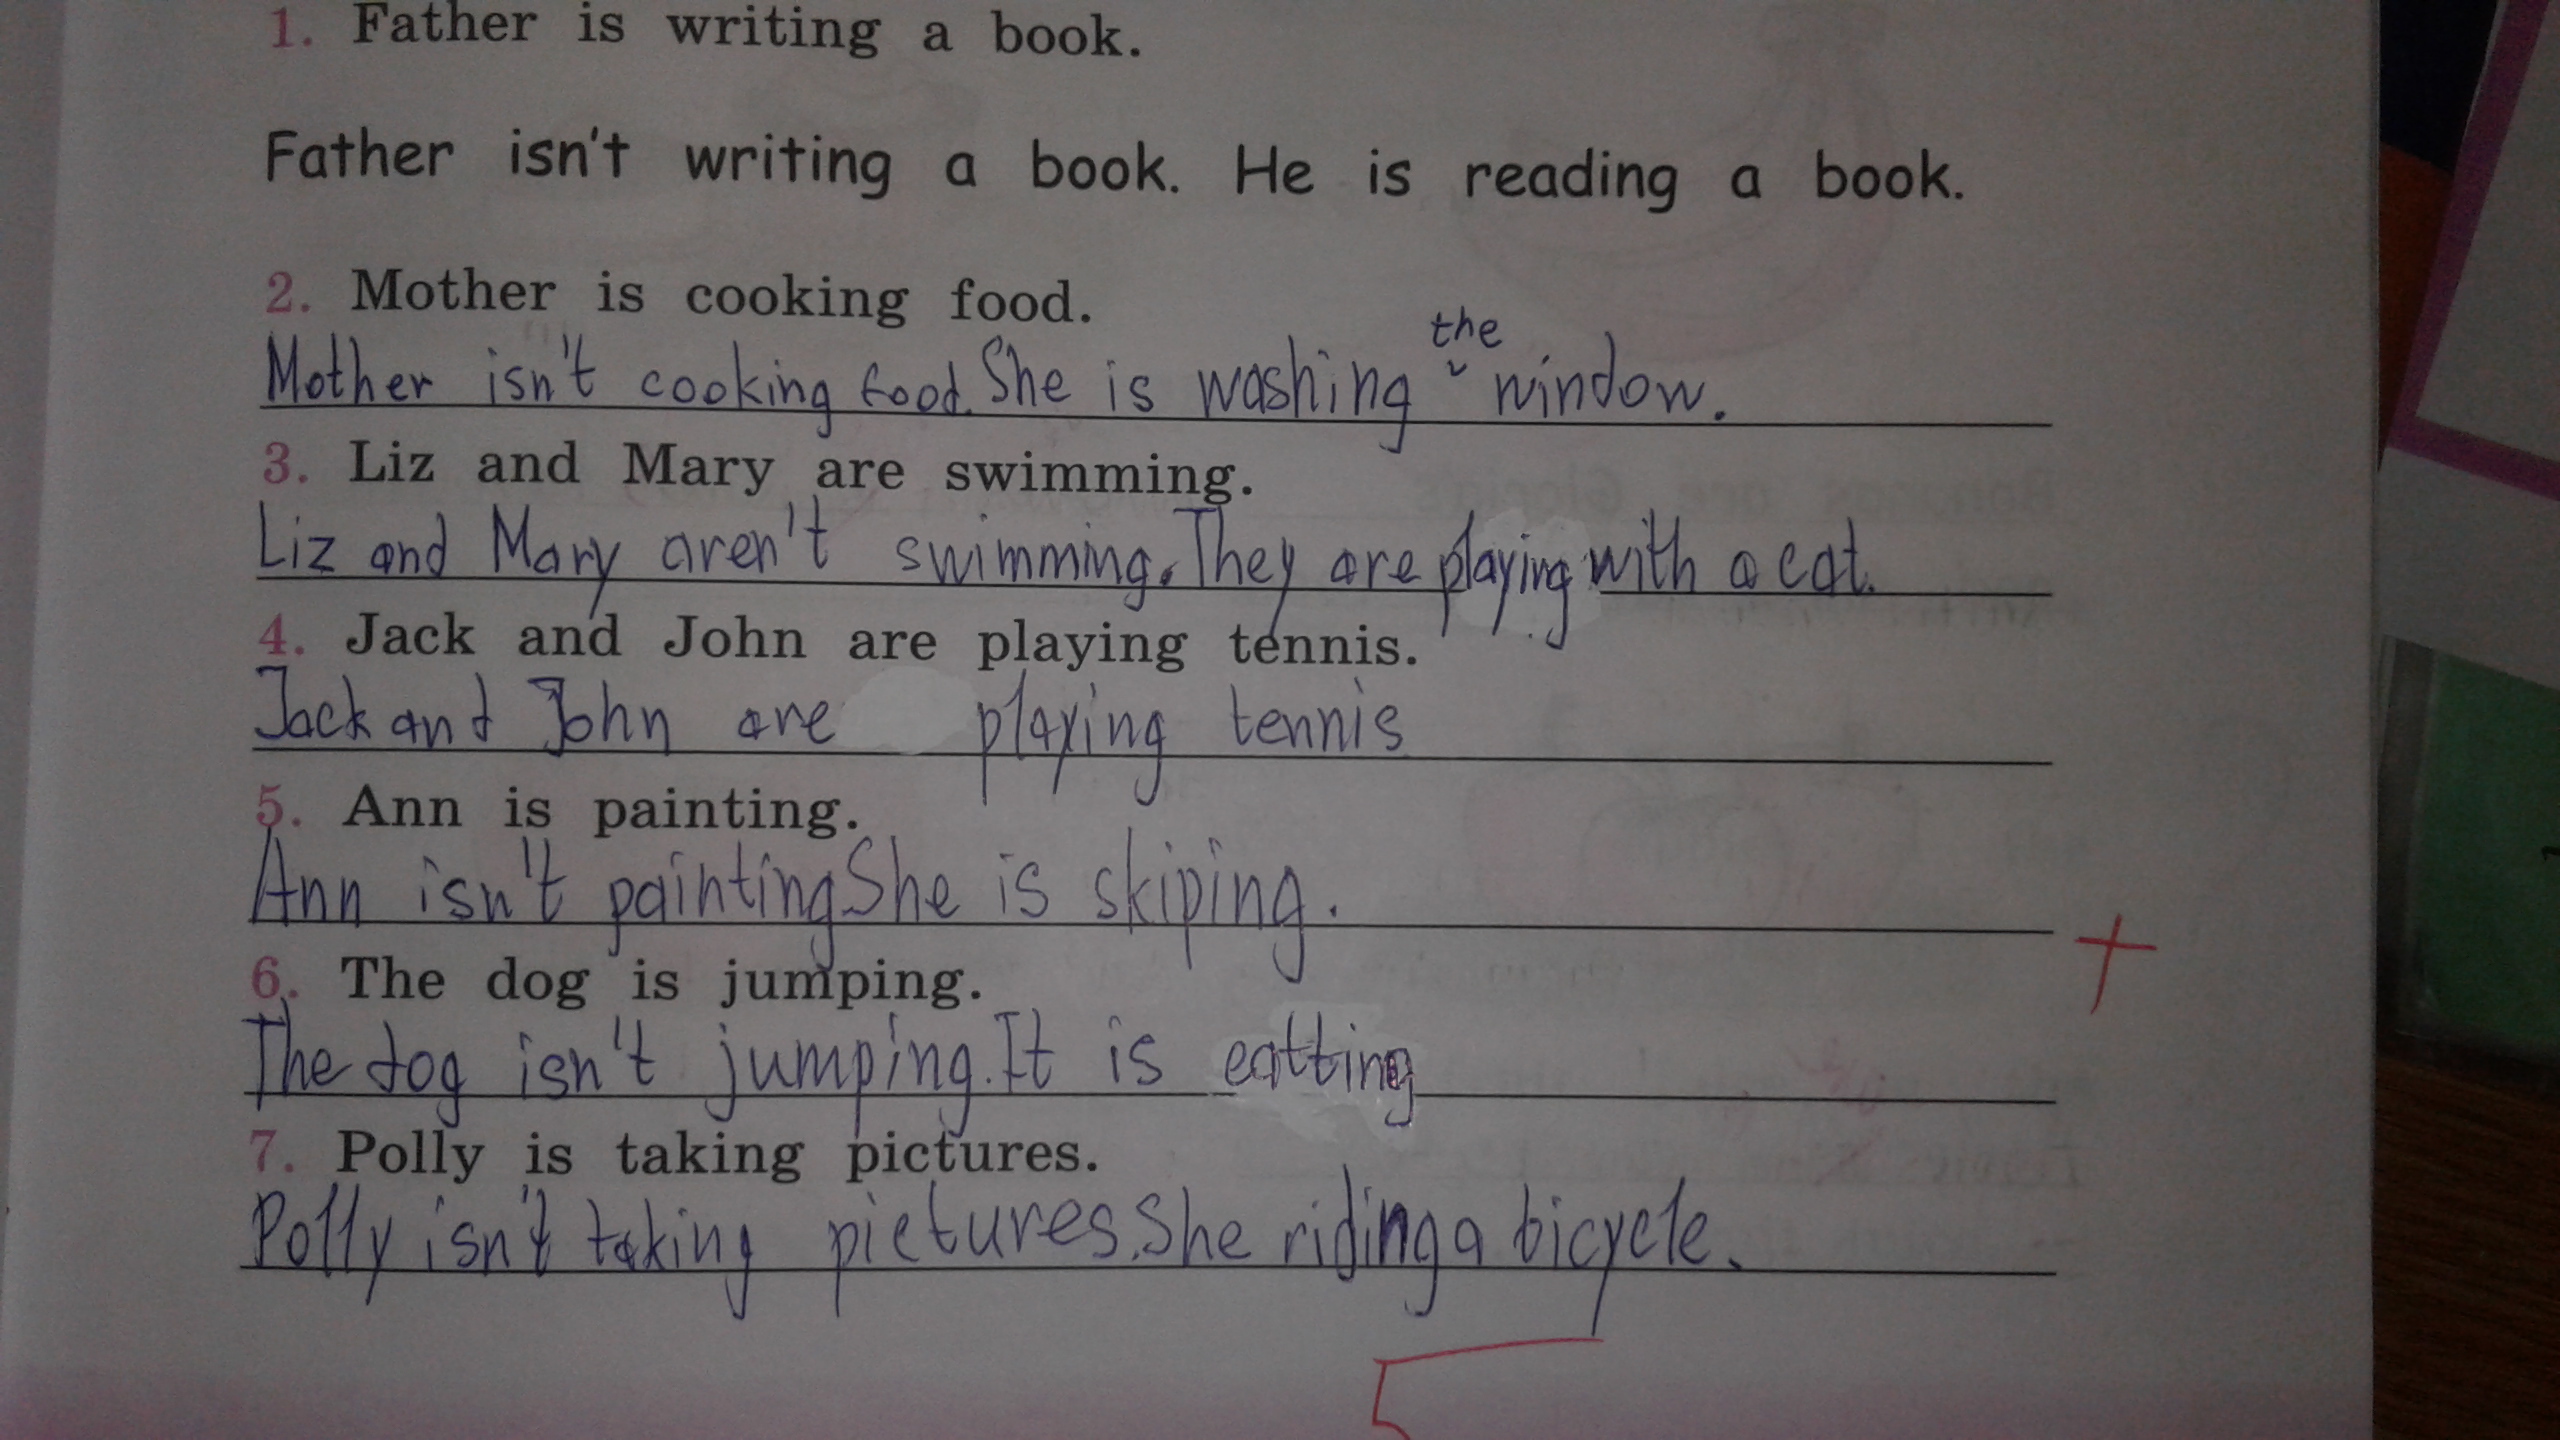 1. Father is writing a book.
Father isn't writing a book. He is reading a book.
2. Mother is cooking food.
the
Mother isn't cooking food. She is washing ˇ window.
3. Liz and Mary are swimming.
Liz and Mary aren't swimming. They are playing with a cat.
4. Jack and John are playing tennis.
Jack and John are playing tennis
5. Ann is painting.
Ann isn't painting She is skiping.
6. The dog is jumping.
The dog isn't jumping. It is eatting
7. Polly is taking pictures.
Polly isn't taking pictures. She riding a bicycle.
+
5